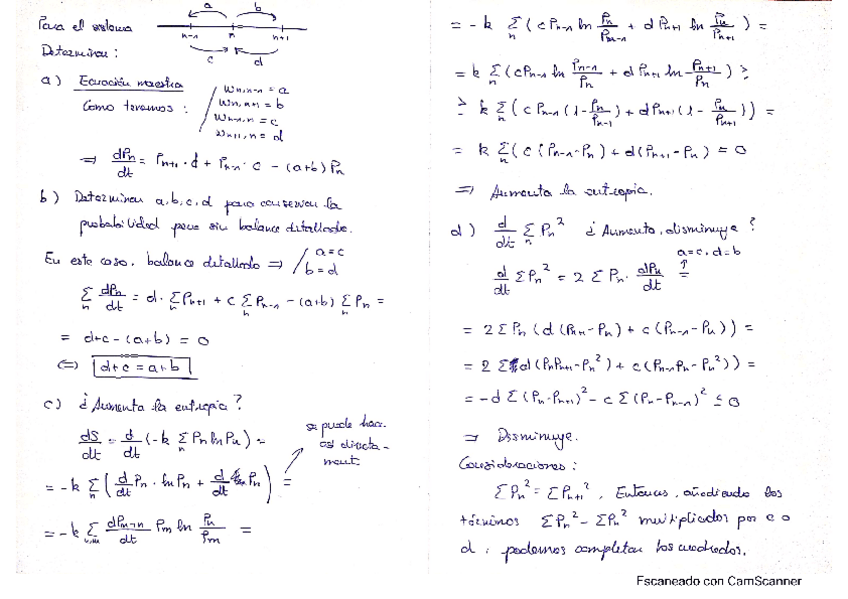 Para el sistema
a b
n-1 n n+1
c d
Determinar:
a) Ecuación maestra
Como tenemos:
Wn,n-1 = a
Wn,n+1 = b
Wn-1,n = c
Wn+1,n = d
⇒ dPn/dt = Pn+1 · d + Pn-1 · c - (a+b) Pn
b) Determinar a, b, c, d para conservar la
probabilidad pero sin balance detallado.
En este caso, balance detallado ⇒ a = c
b = d
Σn dPn/dt = d · Σn Pn+1 + c Σn Pn-1 - (a+b) Σn Pn =
= d+c - (a+b) = 0
⇔ d+c = a+b
c) ¿Aumenta la entropía?
dS/dt = d/dt (-k Σn Pn ln Pn) =
= -k Σn (d/dt Pn · ln Pn + d/dt ln Pn) =
se puede hacer
así directa-
ment.
= -k Σn,m dPm→n/dt Pm ln Pn/Pm =
= -k Σn (c Pn-1 ln Pn/Pn-1 + d Pn+1 ln Pn/Pn+1) =
= k Σn (c Pn-1 ln Pn-1/Pn + d Pn+1 ln Pn+1/Pn) ≥
≥ k Σn (c Pn-1 (1 - Pn/Pn-1) + d Pn+1 (1 - Pn/Pn+1)) =
= k Σn (c (Pn-1 - Pn) + d (Pn+1 - Pn)) = 0
⇒ Aumenta la entropía.
d) d/dt Σn Pn² ¿Aumenta, disminuye?
a=c, d=b
d/dt Σ Pn² = 2 Σ Pn · dPn/dt =
= 2 Σ Pn (d (Pn+1 - Pn) + c (Pn-1 - Pn)) =
= 2 Σ d (Pn Pn+1 - Pn²) + c (Pn-1 Pn - Pn²)) =
= -d Σ (Pn - Pn+1)² - c Σ (Pn - Pn-1)² ≤ 0
⇒ Disminuye.
Consideraciones:
Σ Pn² = Σ Pn+1². Entonces, añadiendo los
términos Σ Pn² - Σ Pn² multiplicados por c o
d, podemos completar los cuadrados.
Escaneado con CamScanner